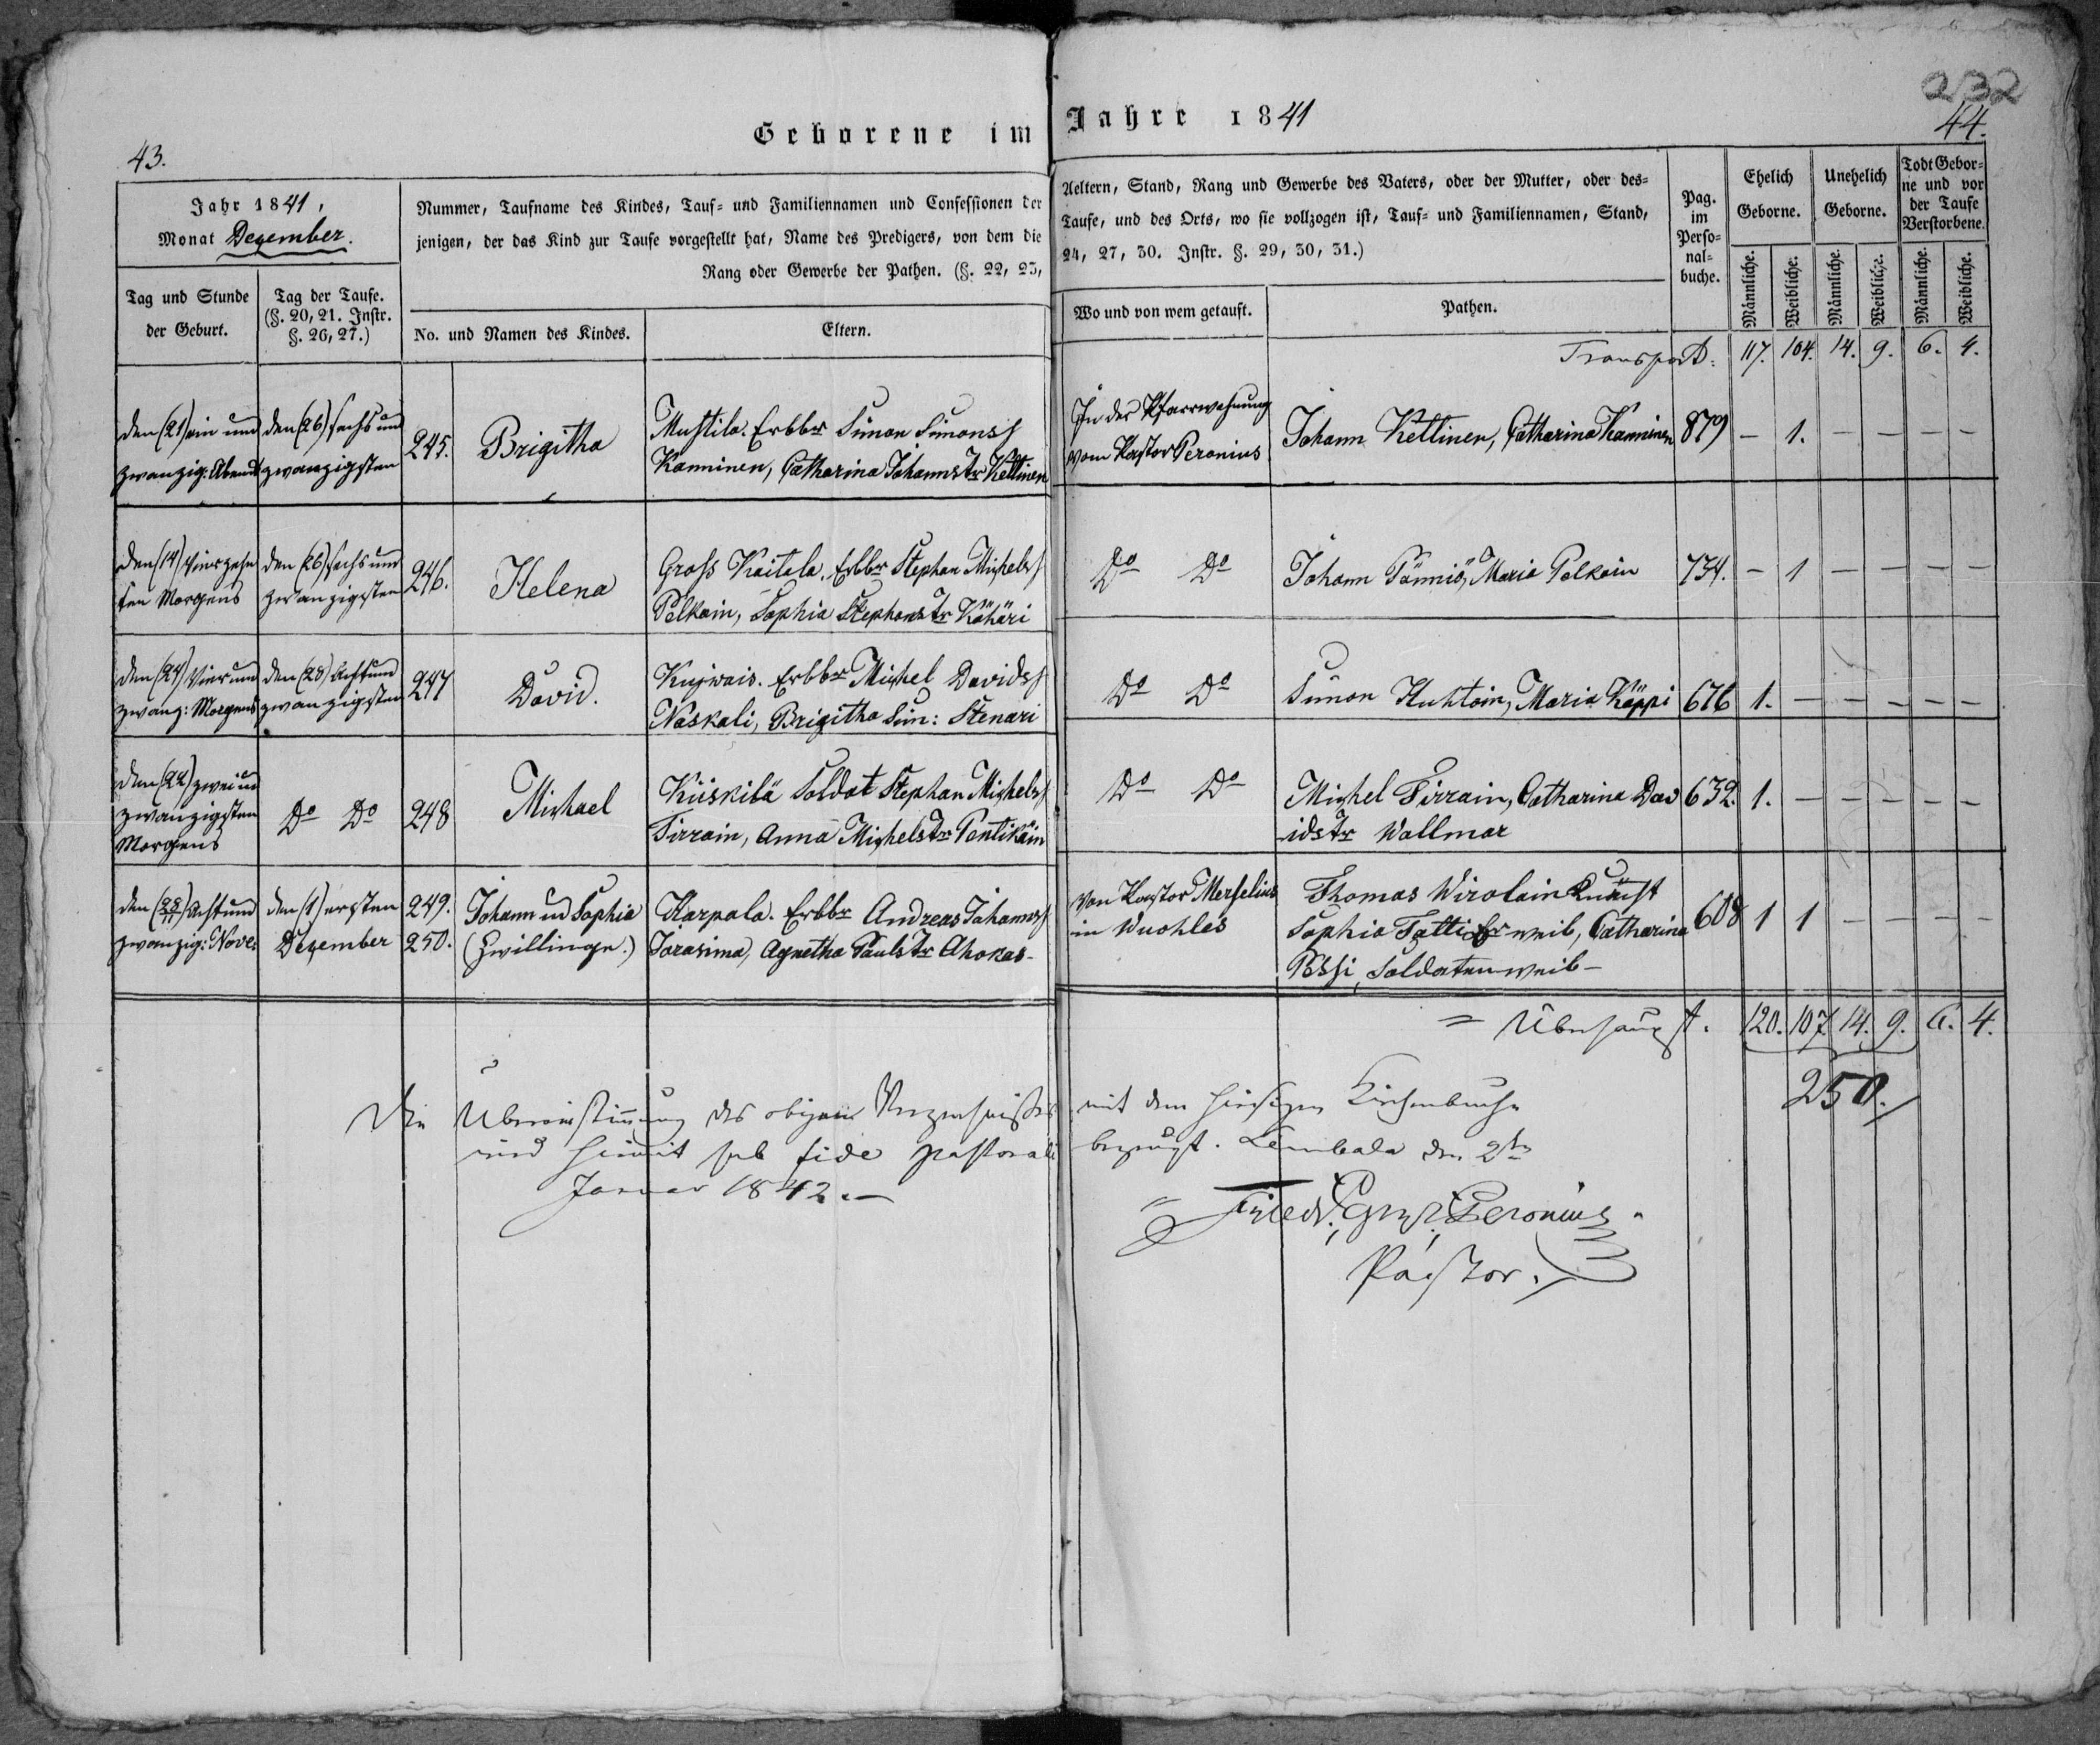 232
Geborene im Jahre 1841
43.
44.
Jahr 1841,
Monat Dezember.
Nummer, Taufname des Kindes, Tauf- und Familiennamen und Confessionen der
jenigen, der das Kind zur Taufe vorgestellt hat, Name des Predigers, von dem die
Rang oder Gewerbe der Pathen. (§. 22, 23,
Aeltern, Stand, Rang und Gewerbe des Vaters, oder der Mutter, oder des-
Taufe, und des Orts, wo sie vollzogen ist, Tauf- und Familiennamen, Stand,
24, 27, 30. Instr. §. 29, 30, 31.)
Pag.
im
Perso-
nal-
buche.
Ehelich
Geborne.
Unehelich
Geborne.
Todt Gebor-
ne und vor
der Taufe
Verstorbene.
Tag und Stunde
der Geburt.
Tag der Taufe.
(§. 20, 21. Instr.
§. 26, 27.)
No. und Namen des Kindes.
Eltern.
Wo und von wem getauft.
Pathen.
Männliche.
Weibliche.
Männliche.
Weibliche.
Männliche.
Weibliche.
Transport: 117. 104. 14. 9. 6. 4.
den (21) ein und
zwanzig. Abends
den (26) sechs und
zwanzigsten
245.
Brigitha
Mustila. Erbbr Simon Simons
Kanninen, Catharina Johannstr Kettinen
In der Pfarrwohnung
vom Pastor Peronius
Johann Kettinen, Catharina Kanninen
879 – 1. – – – –
den (14) Vierzehn
ten Morgens
den (26) sechs und
zwanzigsten
246.
Helena
Gross Kaitala. Erbbr Stephan Michels
Pelkain, Sophia Stephanstr Köhäri
Do Do
Johann Pönniö, Maria Polkain
734. – 1 – – – –
den (24) Vier und
zwanz: Morgens
den (28) Acht und
zwanzigsten
247
David.
Kujwais. Erbbr Michel Davids
Naskali, Brigitha Sim: Stenari
Do Do
Simon Huhtoin, Maria Käppi
676 1. – – – – –
den (22) zwei und
zwanzigsten
Morgens
Do Do
248
Michael
Kiiskilä Soldat Stephan Michels
Tirrain, Anna Michelstr Pentikäin
Do Do
Michel Tirrain, Catharina Dav
idstr Wallmar
632. 1. – – – – –
den (28/11) Acht und
zwanzig: Nove:
den (1) ersten
Dezember
249.
250.
Johann und Sophia
(Zwillinge.)
Karpala. Erbbr Andreas Johanns
Jorasima, Agnetha Paulstr Ahokas
Von Pastor Merselius
in Wuohles
Thomas Wirolain
Sophia Tatti weib, Catharina
Pässi, Soldatenweib –
608 1 1 – – – –
= Überhaupt. 120. 107. 14. 9. 6. 4.
250.
Die Übereinstimmung des obigen Verzeichnisses mit dem hiesigen Kirchenbuche
wird hiemit sub fide pastorali bezeugt. Lembala den 2ten
Januar 1842. –
Peronius.
Pastor.